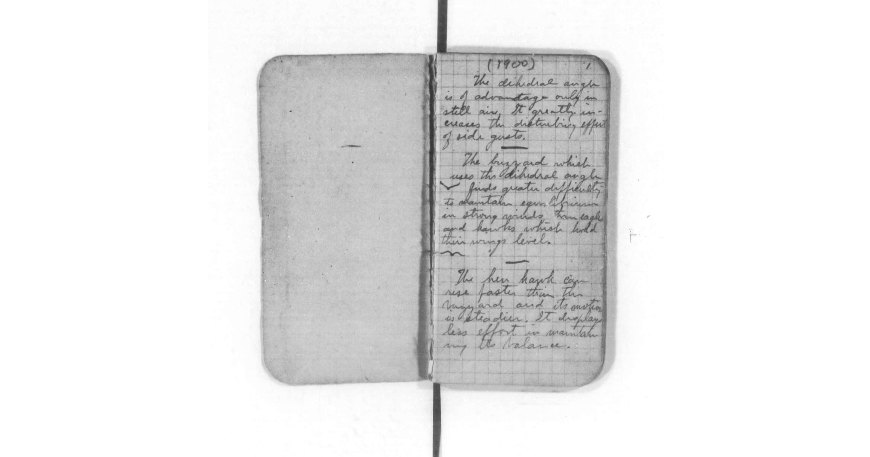 (1900) 1
The dihedral angle
is of advantage only in
still air. It greatly in-
creases the disturbing effect
of side gusts.
The buzzard which
uses the dihedral angle
finds greater difficulty
to maintain equilibrium
in strong winds than eagles
and hawks which hold
their wings level.
The hen hawk can
rise faster than the
buzzard and its motion
is steadier. It displays
less effort in maintain
ing its balance.